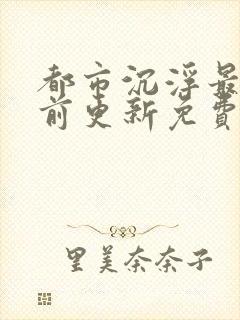 都市沉浮最
前更新免費
里美奈奈子